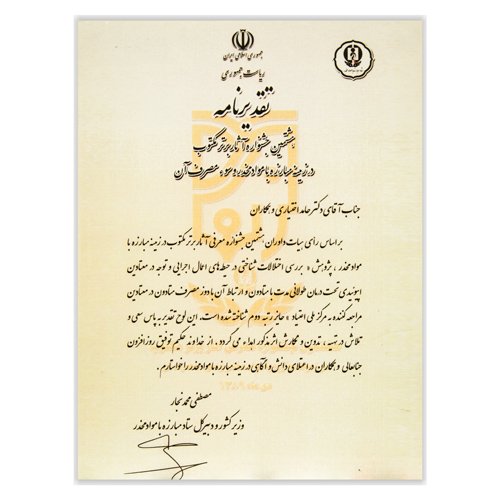 جمهوری اسلامی ایران
ریاست جمهوری
تقدیرنامه
هشتمین جشنواره آثار برتر مکتوب
در زمینه مبارزه با مواد مخدر و سوء مصرف آن
جناب آقای دکتر حامد اختیاری و همکاران
براساس رأی هیات داوران هشتمین جشنواره معرفی آثار برتر مکتوب در زمینه مبارزه با
مواد مخدر، پژوهش « بررسی اختلالات شناختی در حیطه‌های اعمال اجرایی و توجه در معتادین
اپیوئیدی تحت درمان طولانی مدت با متادون و ارتباط آن با دوز مصرف متادون در معتادین
مراجعه کننده به مرکز ملی اعتیاد » حایز رتبه دوم شناخته شده است. این لوح تقدیر به پاس سعی و
تلاش در تهیه، تدوین و نگارش اثر مذکور اهداء می گردد. از خداوند حکیم توفیق روزافزون
جنابعالی و همکاران در اعتلای دانش و آگاهی در زمینه مبارزه با مواد مخدر را خواستارم.
دی ماه ۱۳۸۹
مصطفی محمد نجار
وزیر کشور و دبیر کل ستاد مبارزه با مواد مخدر